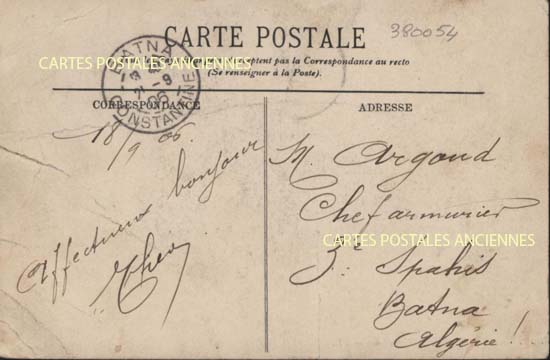 CARTE POSTALE
380054
CARTES POSTALES ANCIENNES
ptent pas la Correspondance au recto
(Se renseigner à la Poste).
BATNA
CONSTANTINE
CORRESPONDANCE
ADRESSE
18/9 06
Affectueux bonjour
M. Argoud
Chef armurier
CARTES POSTALES ANCIENNES
3e Spahis
Batna
Algérie!